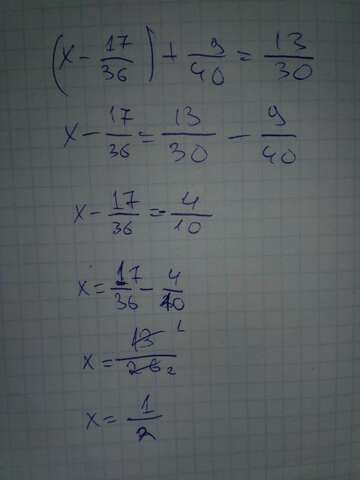 (x - 17/36) + 9/40 = 13/30
x - 17/36 = 13/30 - 9/40
x - 17/36 = 4/10
x = 17/36 - 4/10
x = 13/26 1 2
x = 1/2